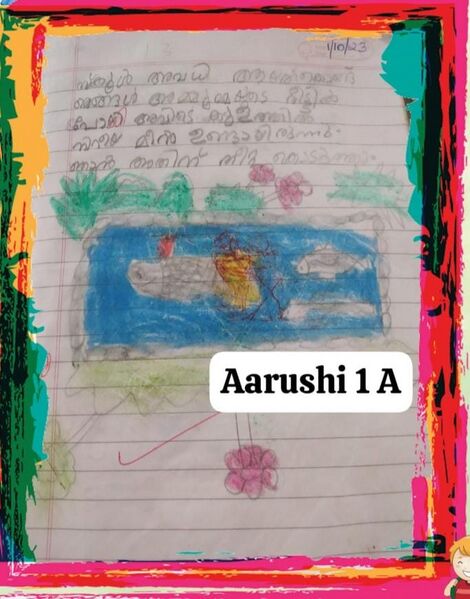 1/10/23
സ്കൂൾ അവധി ആയതുകൊണ്ട്
ഞങ്ങൾ അമ്മൂമ്മയുടെ വീട്ടിൽ
പോയി അവിടെ കുളത്തിൽ
നിറയെ മീൻ ഉണ്ടായിരുന്നു.
ഞാൻ അതിന് തീറ്റ കൊടുത്തു.
Aarushi 1 A